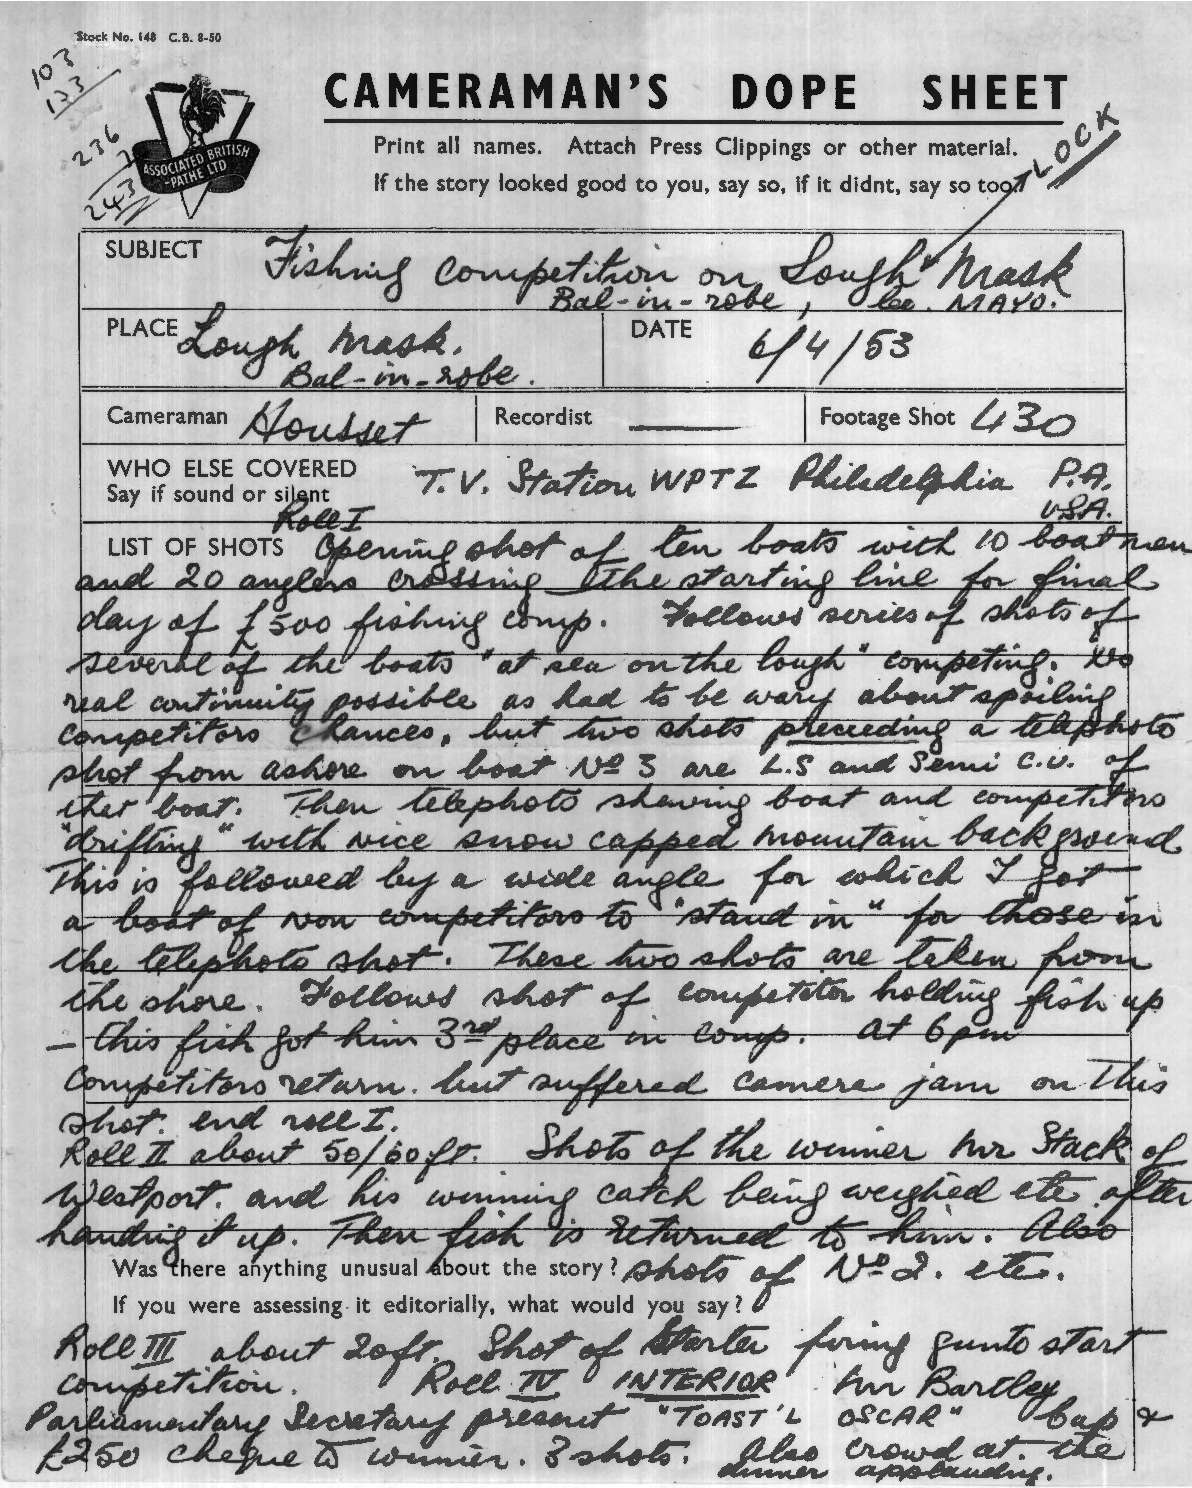 Stock No. 148 C.B. 8-50
103
133
236
7
243
ASSOCIATED BRITISH
-PATHE LTD
CAMERAMAN'S DOPE SHEET
Print all names. Attach Press Clippings or other material.
If the story looked good to you, say so, if it didnt, say so too.
LOCK
SUBJECT Fishing competition on Lough Mask
Bal-in-robe, Co. MAYO.
PLACE Lough Mask.
Bal-in-robe.
DATE 6/4/53
Cameraman Housset Recordist Footage Shot 430
WHO ELSE COVERED
Say if sound or silent
T.V. Station WPTZ Philadelphia P.A.
U.S.A.
Roll I
LIST OF SHOTS Opening shot of ten boats with 10 boatmen
and 20 anglers crossing the starting line for final
day of £500 fishing comp. Follows series of shots of
several of the boats "at sea on the lough" competing. No
real continuity possible as had to be wary about spoiling
competitors chances, but two shots preceeding a telephoto
shot from ashore on boat No 3 are L.S and Semi C.U. of
that boat. Then telephoto showing boat and competitors
"drifting" with nice snow capped mountain background
This is followed by a wide angle for which I got
a boat of non competitors to "stand in" for those in
the telephoto shot. These two shots are taken from
the shore. Follows shot of competitor holding fish up
- this fish got him 3rd place in comp. At 6pm
Competitors return. but suffered camera jam on this
shot. end roll I.
Roll II about 50/60ft. Shots of the winner Mr Stack of
Westport. and his winning catch being weighed etc after
handing it up. Then fish is returned to him. Also
Was there anything unusual about the story? shots of No 2. etc.
If you were assessing it editorially, what would you say?
Roll III about 20ft. Shot of Starter firing gun to start
competition. Roll IV INTERIOR Mr Bartley
Parliamentary Secretary present "TOAST'L OSCAR" Cup &
£250 cheque to winner. 3 shots. Also crowd at the
dinner applauding.